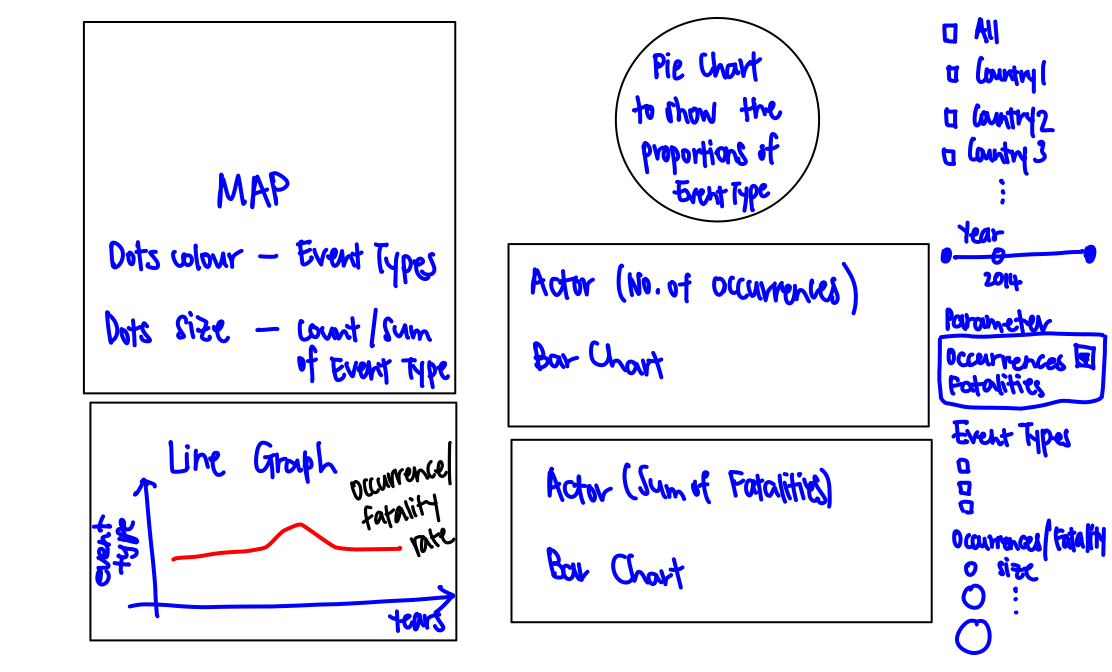 MAP
Dots colour – Event Types
Dots size – count/sum
of Event Type
Line Graph
occurrence/
fatality
rate
event
type
tears
Pie Chart
to show the
proportions of
Event Type
Actor (No. of occurrences)
Bar Chart
Actor (Sum of Fatalities)
Bar Chart
All
Country1
Country2
Country3
⋮
Year
2014
Parameter
Occurrences
Fatalities
Event Types
Occurrences/Fatality
size
⋮